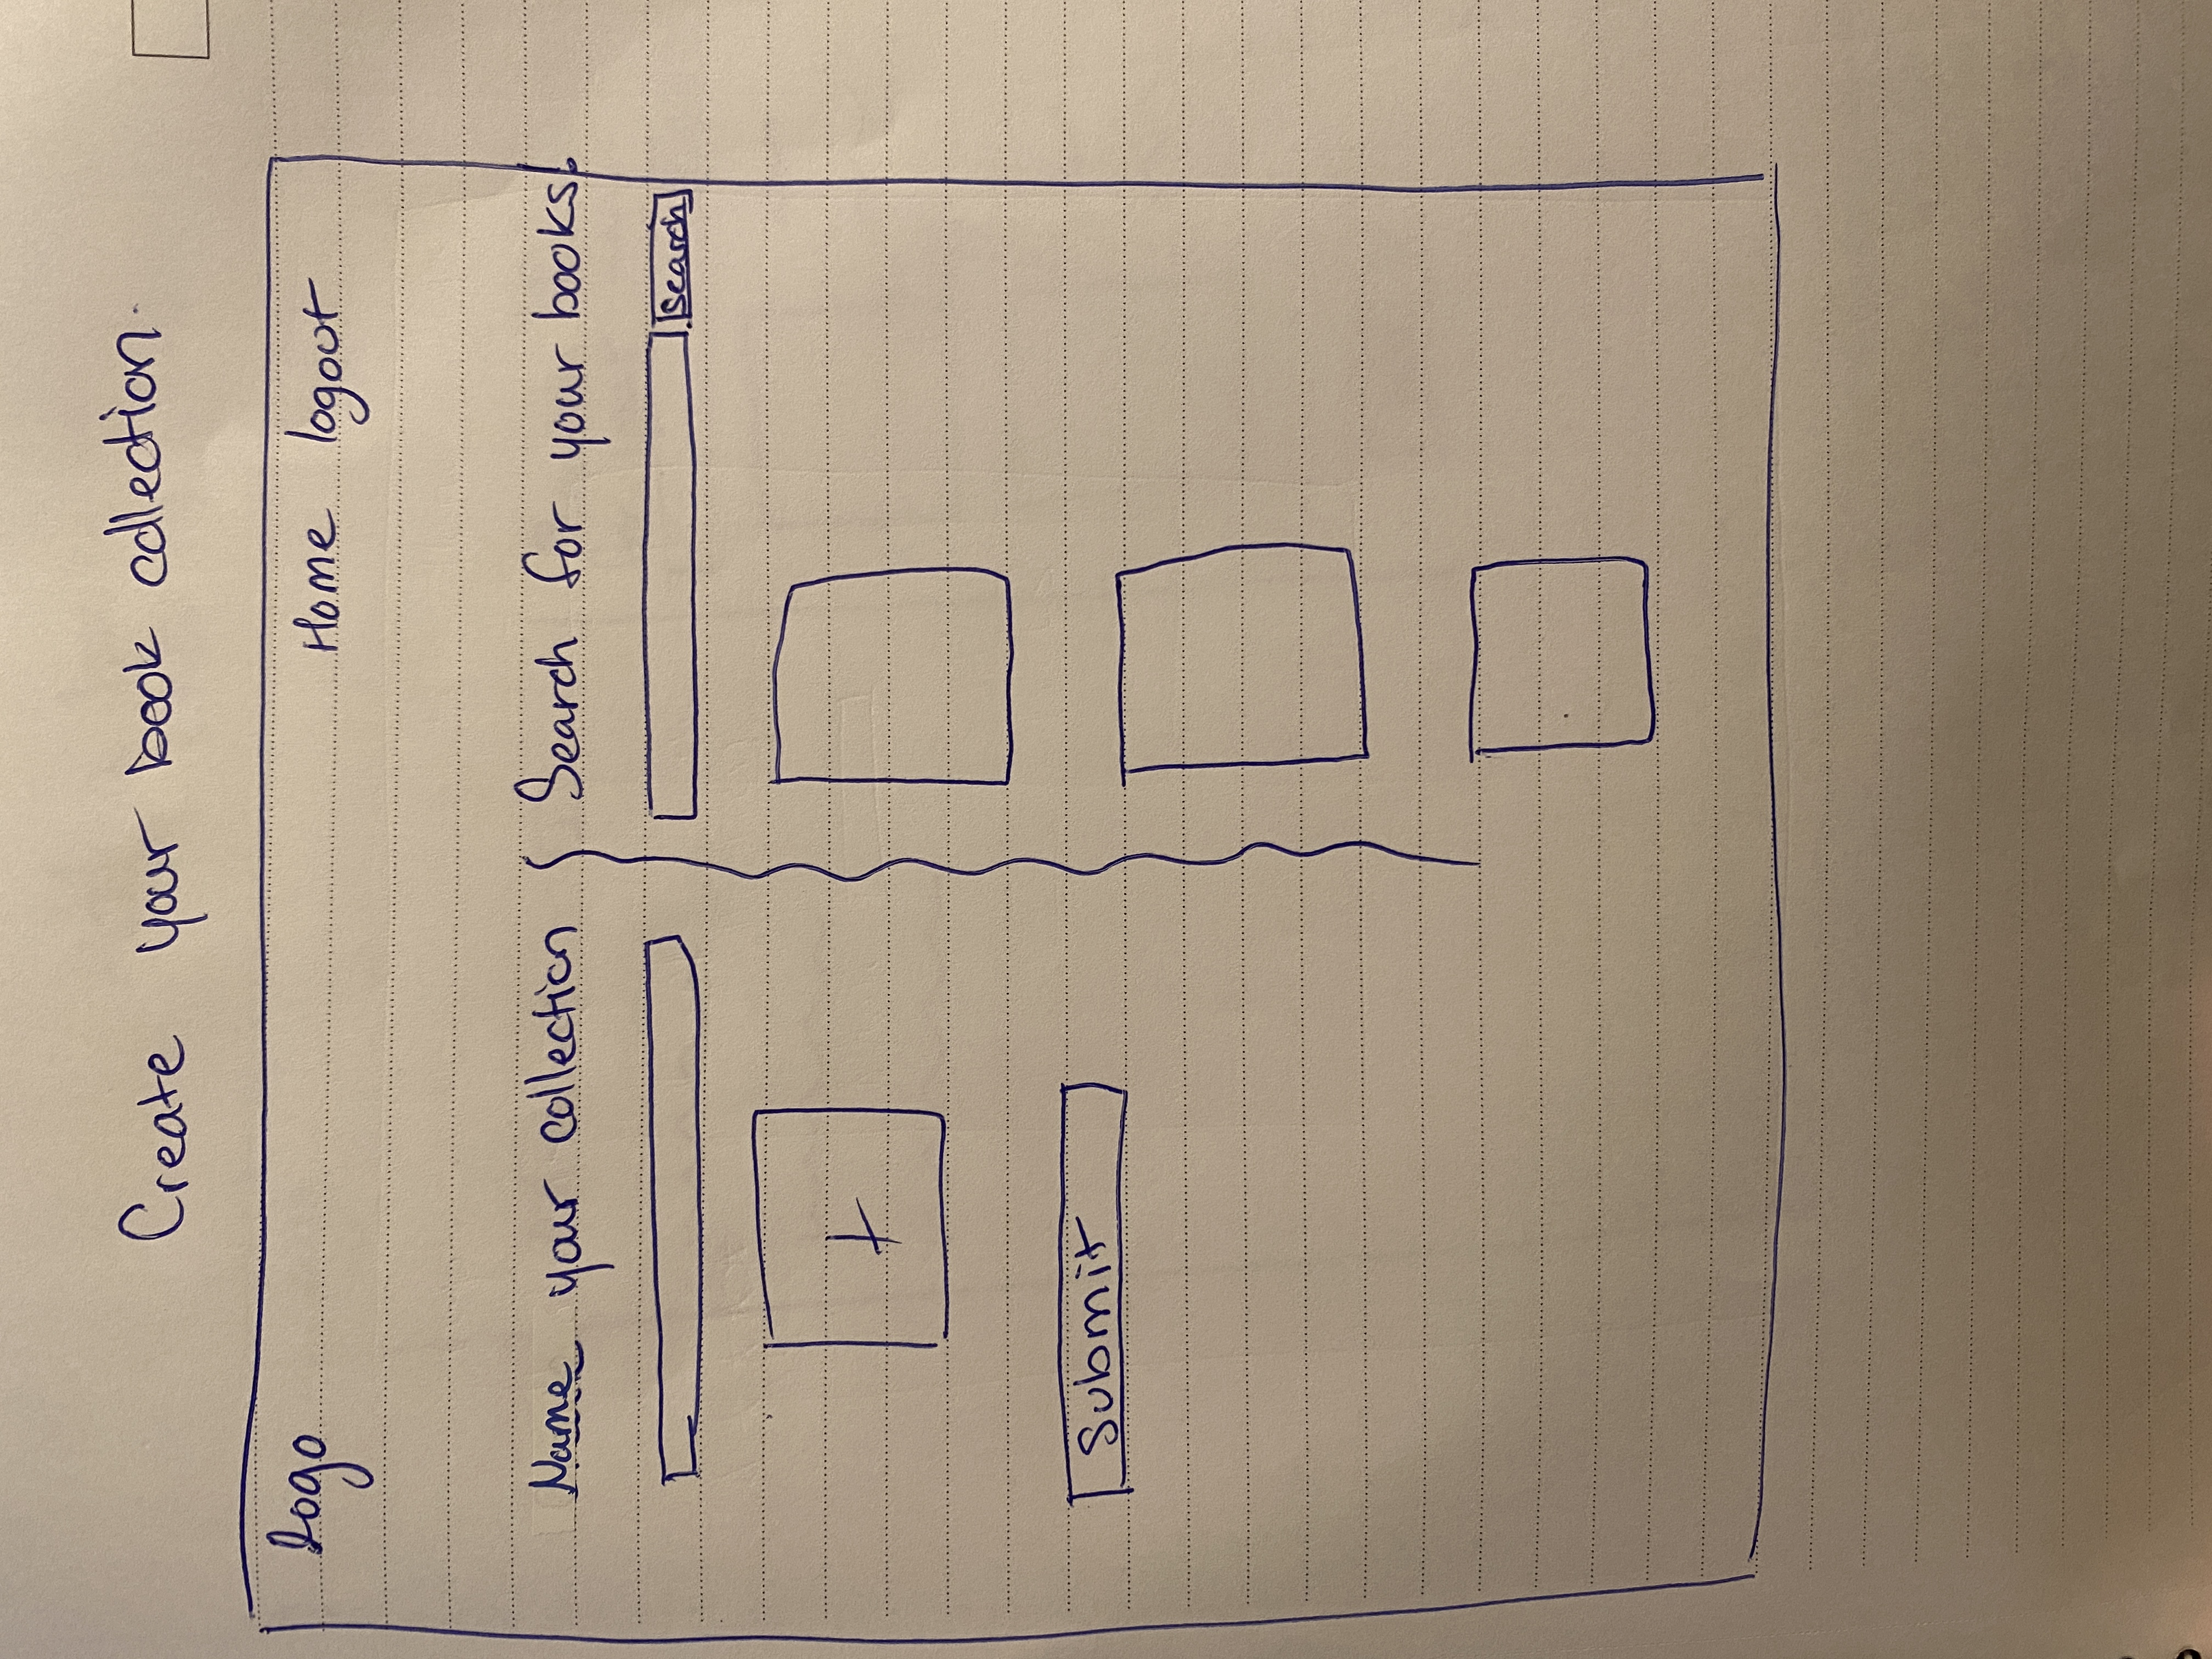 Create your book collection.
logo Home logout
Name your collection
Search for your books.
Search
+
Submit